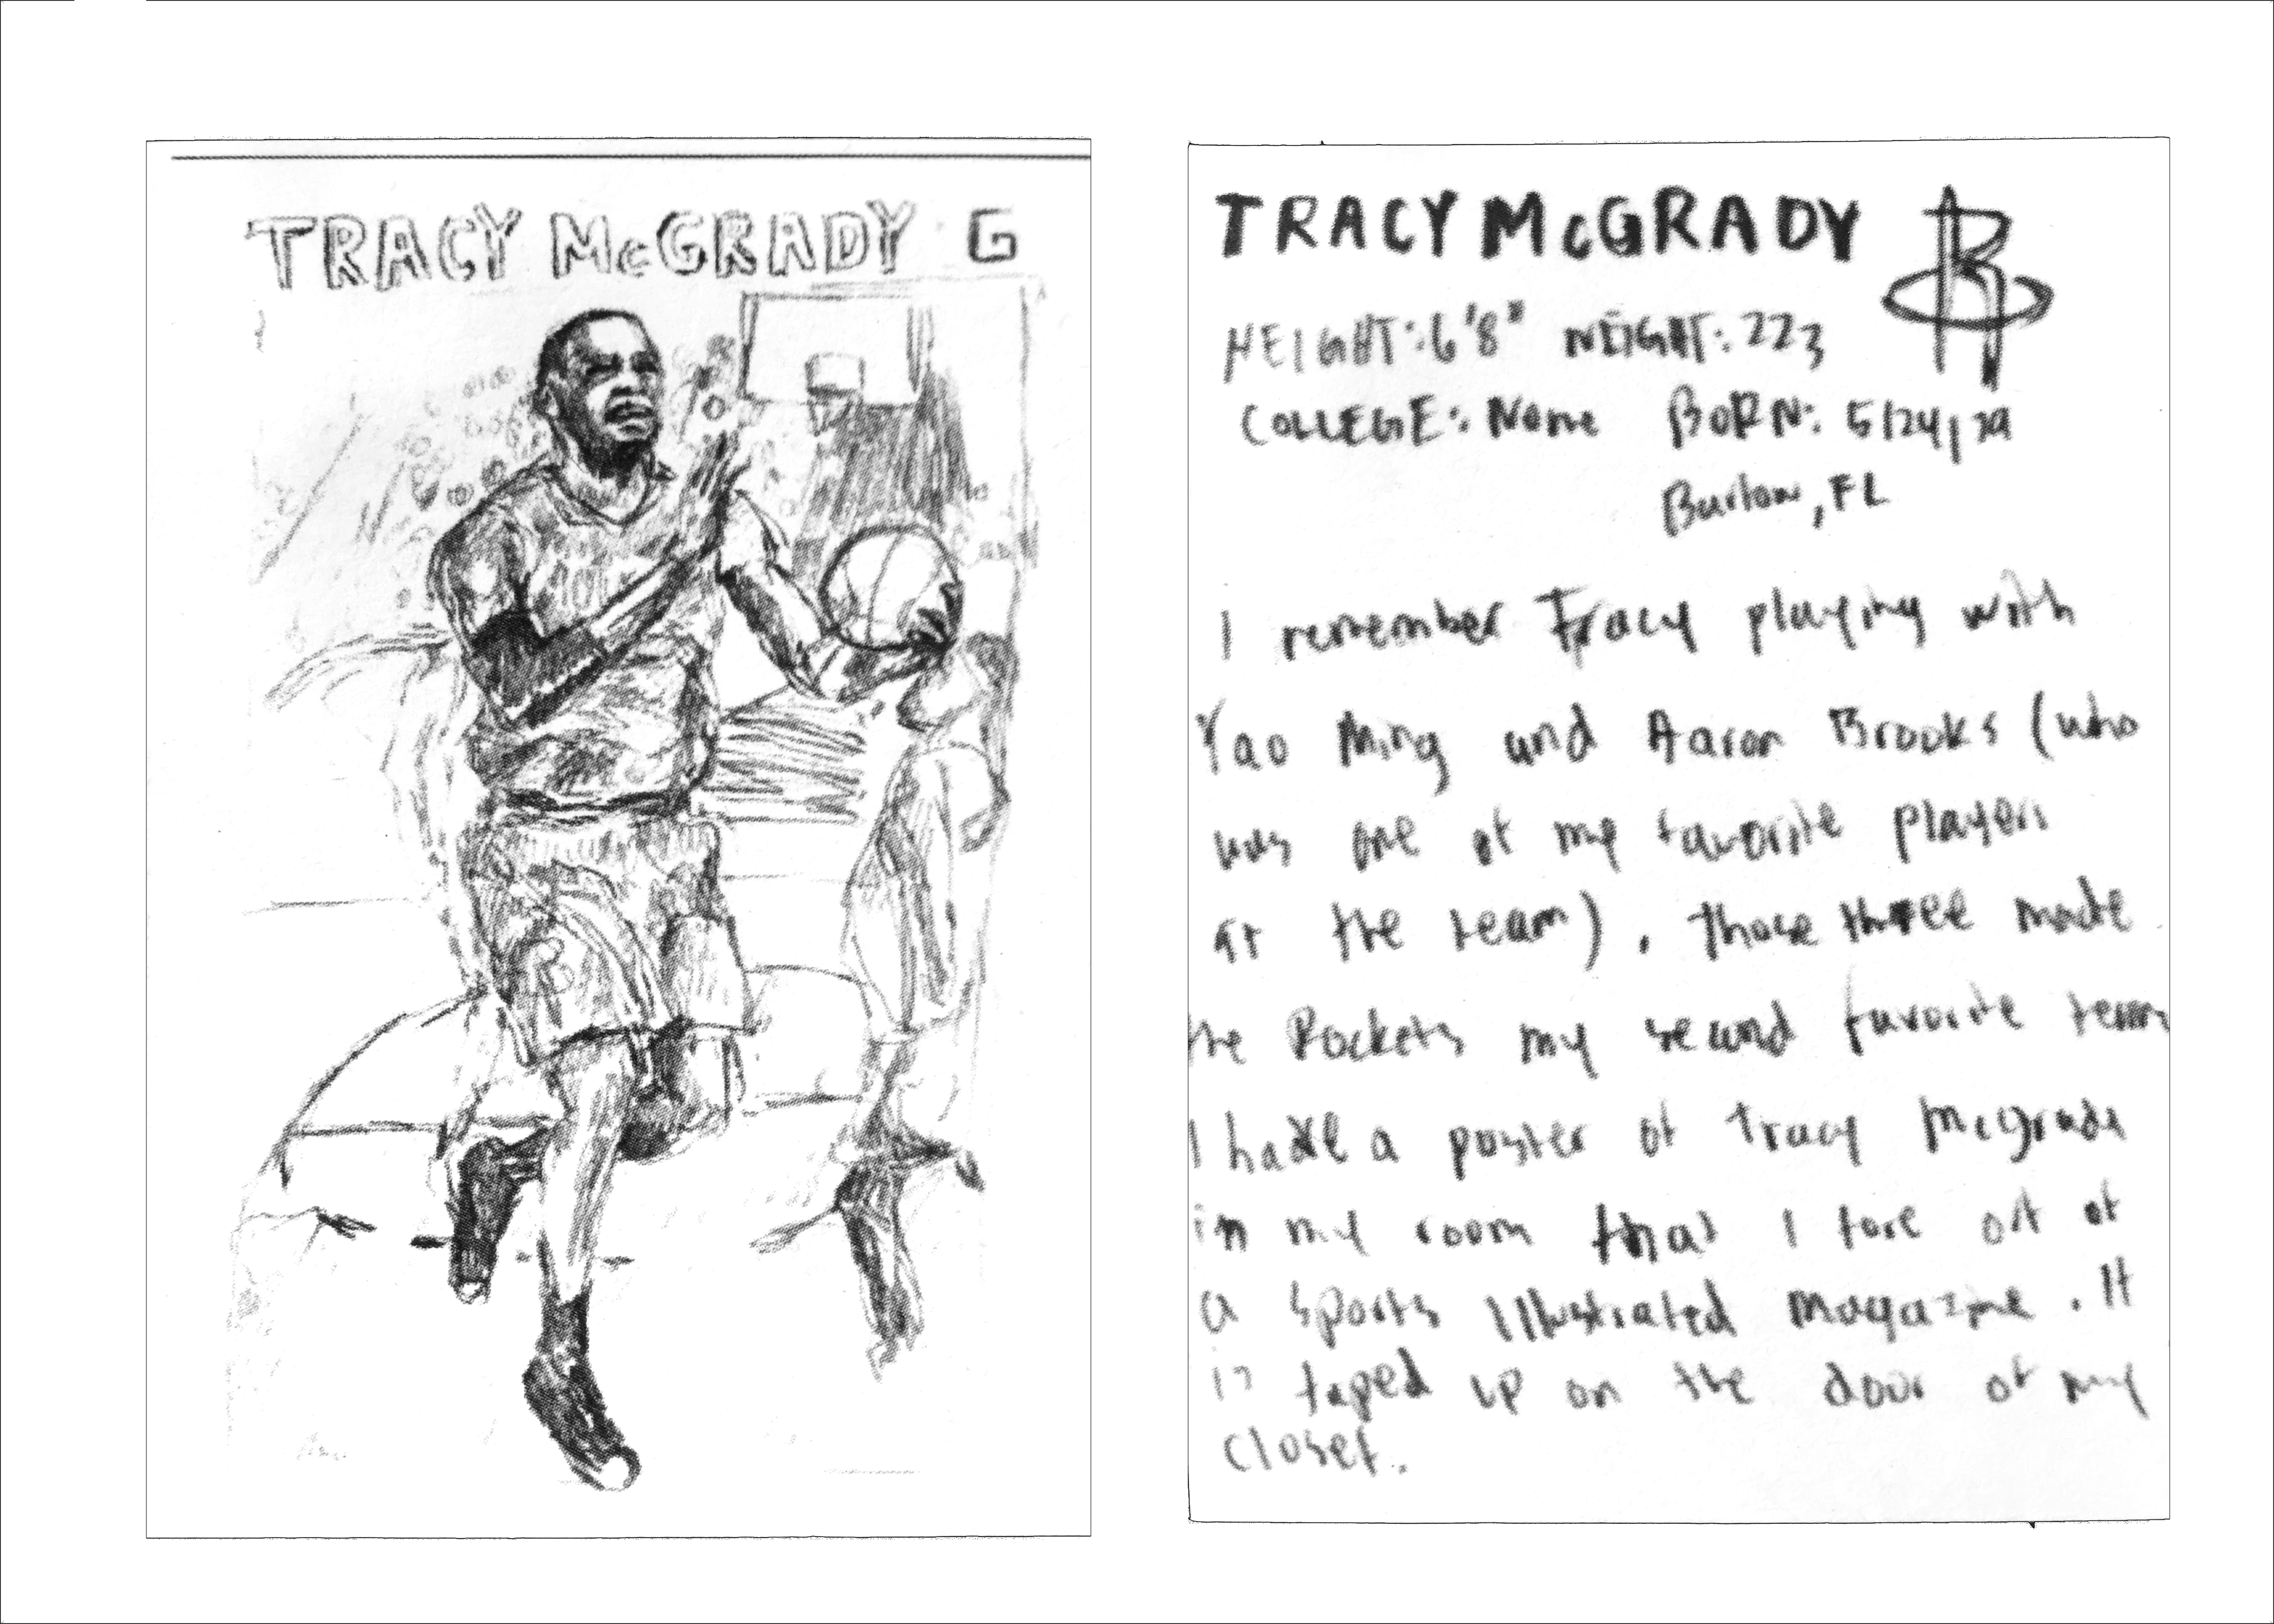 TRACY McGRADY G
TRACY McGRADY
R
HEIGHT: 6'8" WEIGHT: 223
COLLEGE: None BORN: 5/24/79
Bartow, FL
I remember Tracy playing with
Yao Ming and Aaron Brooks (who
was one of my favorite players
at the team). Those three made
the Rockets my second favorite team
I have a poster of Tracy McGrady
in my room that I tore out of
a Sports Illustrated magazine. It
is taped up on the door of my
closet.